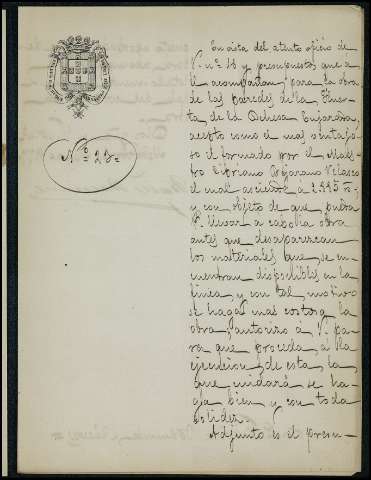 Nº 23=
En vista del atento oficio de
V. nº 18 y presupuestos que a
el acompañan para la obra
de las paredes de la Huer-
ta de la Dehesa
acepto como el mas ventajo-
so el formado por el Maes-
tro Cipriano Bejarano Velasco
el cual asciende a 2.995 rs.
y con objeto de que pueda
V. llevar a cabo la obra
antes que desaparezcan
los materiales que se en-
cuentran disponibles en la
finca, y con tal motivo
se haga mas costosa la
obra, autorizo a V. pa-
ra que proceda, a la
ejecucion, de esta la,
que cuidará se ha-
ga bien y con toda
solidez.
Adjunto es el presu-